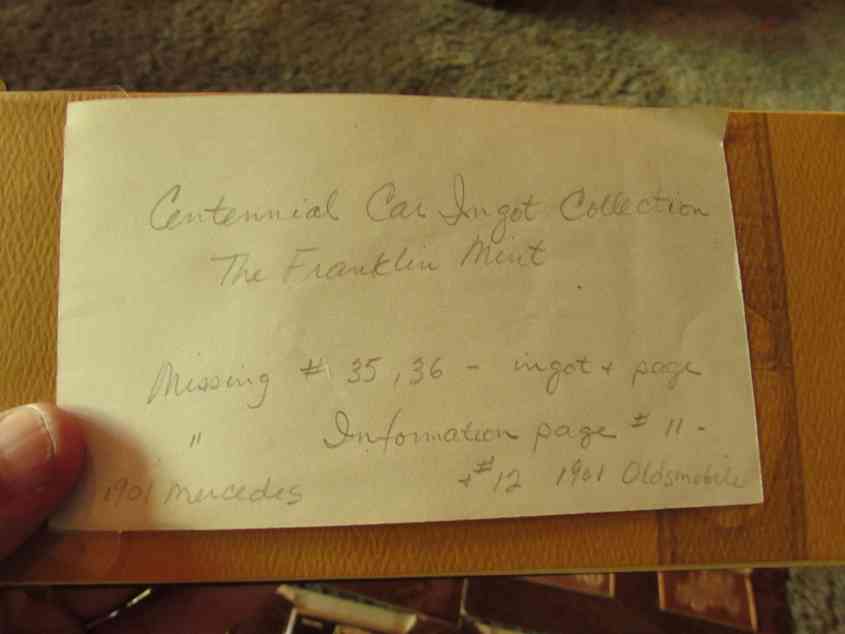 Centennial Car Ingot Collection
The Franklin Mint
Missing # 35, 36 - ingot + page
" Information page # 11 -
1901 Mercedes + #12 1901 Oldsmobile